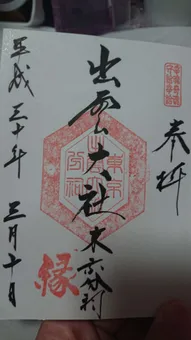 奉拝
出雲大社東京分祠
平成三十年三月十日
縁